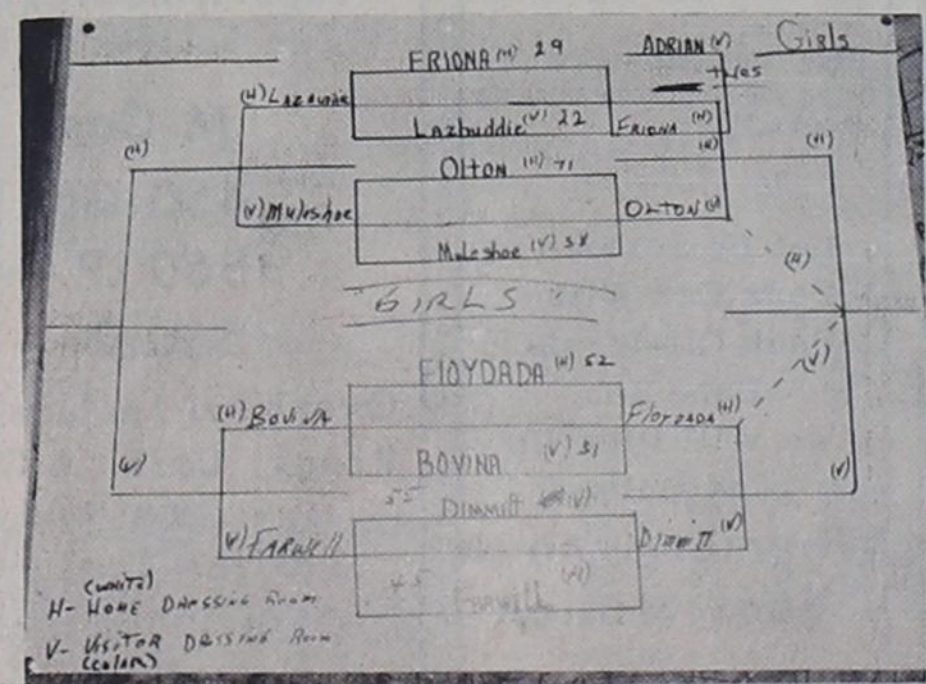 Girls
FRIONA (H) 29
ADRIAN (V)
tues
(H) Lazbuddie
Lazbuddie (V) 22
FRIONA (H)
(H)
(H)
(H)
OltoN (H) 71
(V) Muleshoe
OLTON (V)
Muleshoe (V) 38
(H)
"GIRLS"
(V)
FlOYDADA (H) 52
(H) BoviNA
FloyDADA (H)
BOVINA (V) 31
(V)
(V)
55 DIMMITT (V)
(V) FARWEll
DimmiTT (V)
45 FARWELL (H)
(WHITE)
H- HOME DRESSING Room
V- VISITOR DRESSING Room
(COLOR)